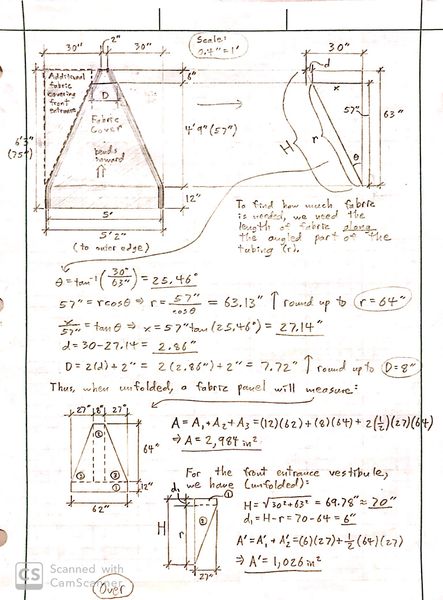 2"
30"
30"
Scale:
0.4" = 1'
30"
d
Additional
fabric
covering
front
entrance
D
6"
x
Fabric
Cover
57"
63"
6'3"
(75")
4'9" (57")
H
r
bends
inward
θ
12"
5'
5'2"
(to outer edge)
To find how much fabric
is needed, we need the
length of fabric along
the angled part of the
tubing (r).
θ = tan⁻¹ (30"/63") = 25.46°
57" = r cos θ ⇒ r = 57"/cos θ = 63.13" ↑ round up to r = 64"
x/57" = tan θ ⇒ x = 57" tan (25.46°) = 27.14"
d = 30 - 27.14 = 2.86"
D = 2(d) + 2" = 2(2.86") + 2" = 7.72" ↑ round up to D = 8"
Thus, when unfolded, a fabric panel will measure:
27" 8" 27"
64"
12"
62"
A = A₁ + A₂ + A₃ = (12)(62) + (8)(64) + 2(½)(27)(64)
⇒ A = 2,984 in²
For the front entrance vestibule,
we have (unfolded):
d₁
H
r
27"
H = √30² + 63² = 69.78" ≈ 70"
d₁ = H - r = 70 - 64 = 6"
A' = A'₁ + A'₂ = (6)(27) + ½(64)(27)
⇒ A' = 1,026 in²
CS Scanned with
CamScanner
Over